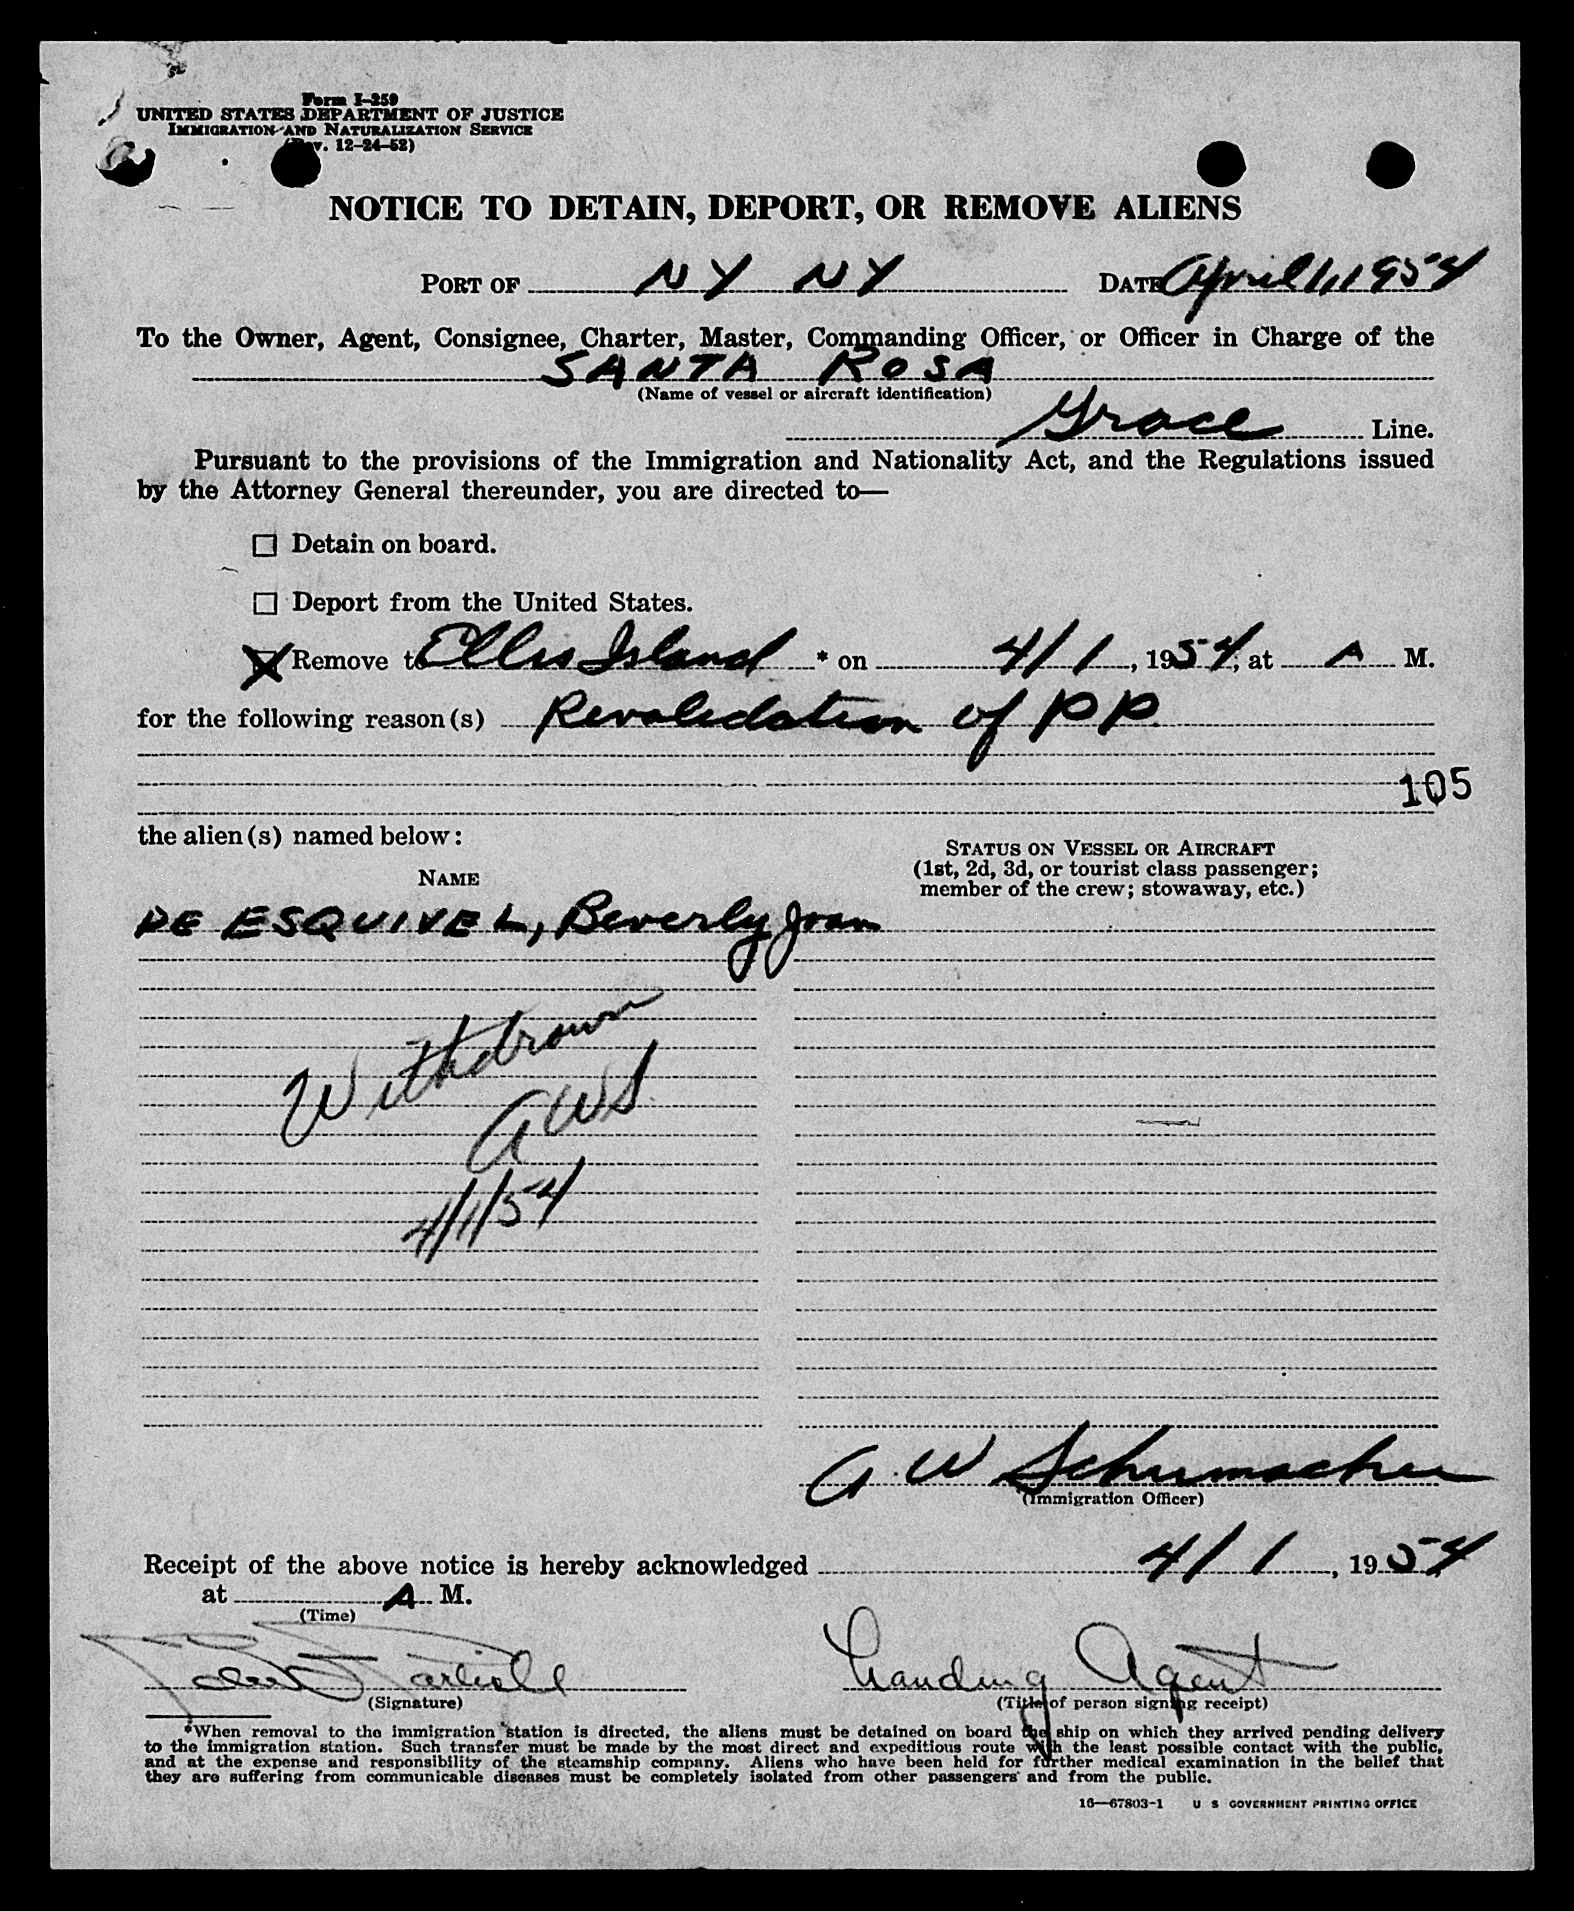 Form I-259
UNITED STATES DEPARTMENT OF JUSTICE
IMMIGRATION AND NATURALIZATION SERVICE
(Rev. 12-24-52)
NOTICE TO DETAIN, DEPORT, OR REMOVE ALIENS
PORT OF NY NY DATE April 1, 1954
To the Owner, Agent, Consignee, Charter, Master, Commanding Officer, or Officer in Charge of the
SANTA ROSA
(Name of vessel or aircraft identification)
Grace Line.
Pursuant to the provisions of the Immigration and Nationality Act, and the Regulations issued
by the Attorney General thereunder, you are directed to—
☐ Detain on board.
☐ Deport from the United States.
☒ Remove to Ellis Island * on 4/1, 1954, at A M.
for the following reason(s) Revalidation of PP
105
the alien(s) named below:
STATUS ON VESSEL OR AIRCRAFT
(1st, 2d, 3d, or tourist class passenger;
member of the crew; stowaway, etc.)
NAME
DE ESQUIVEL, Beverly Joan
Withdrawn
AWS
4/1/54
A W Schumacher
(Immigration Officer)
Receipt of the above notice is hereby acknowledged 4/1, 1954
at A M.
(Time)
Landing Agent
(Signature) (Title of person signing receipt)
*When removal to the immigration station is directed, the aliens must be detained on board the ship on which they arrived pending delivery
to the immigration station. Such transfer must be made by the most direct and expeditious route with the least possible contact with the public,
and at the expense and responsibility of the steamship company. Aliens who have been held for further medical examination in the belief that
they are suffering from communicable diseases must be completely isolated from other passengers and from the public.
16—67803-1 U S GOVERNMENT PRINTING OFFICE